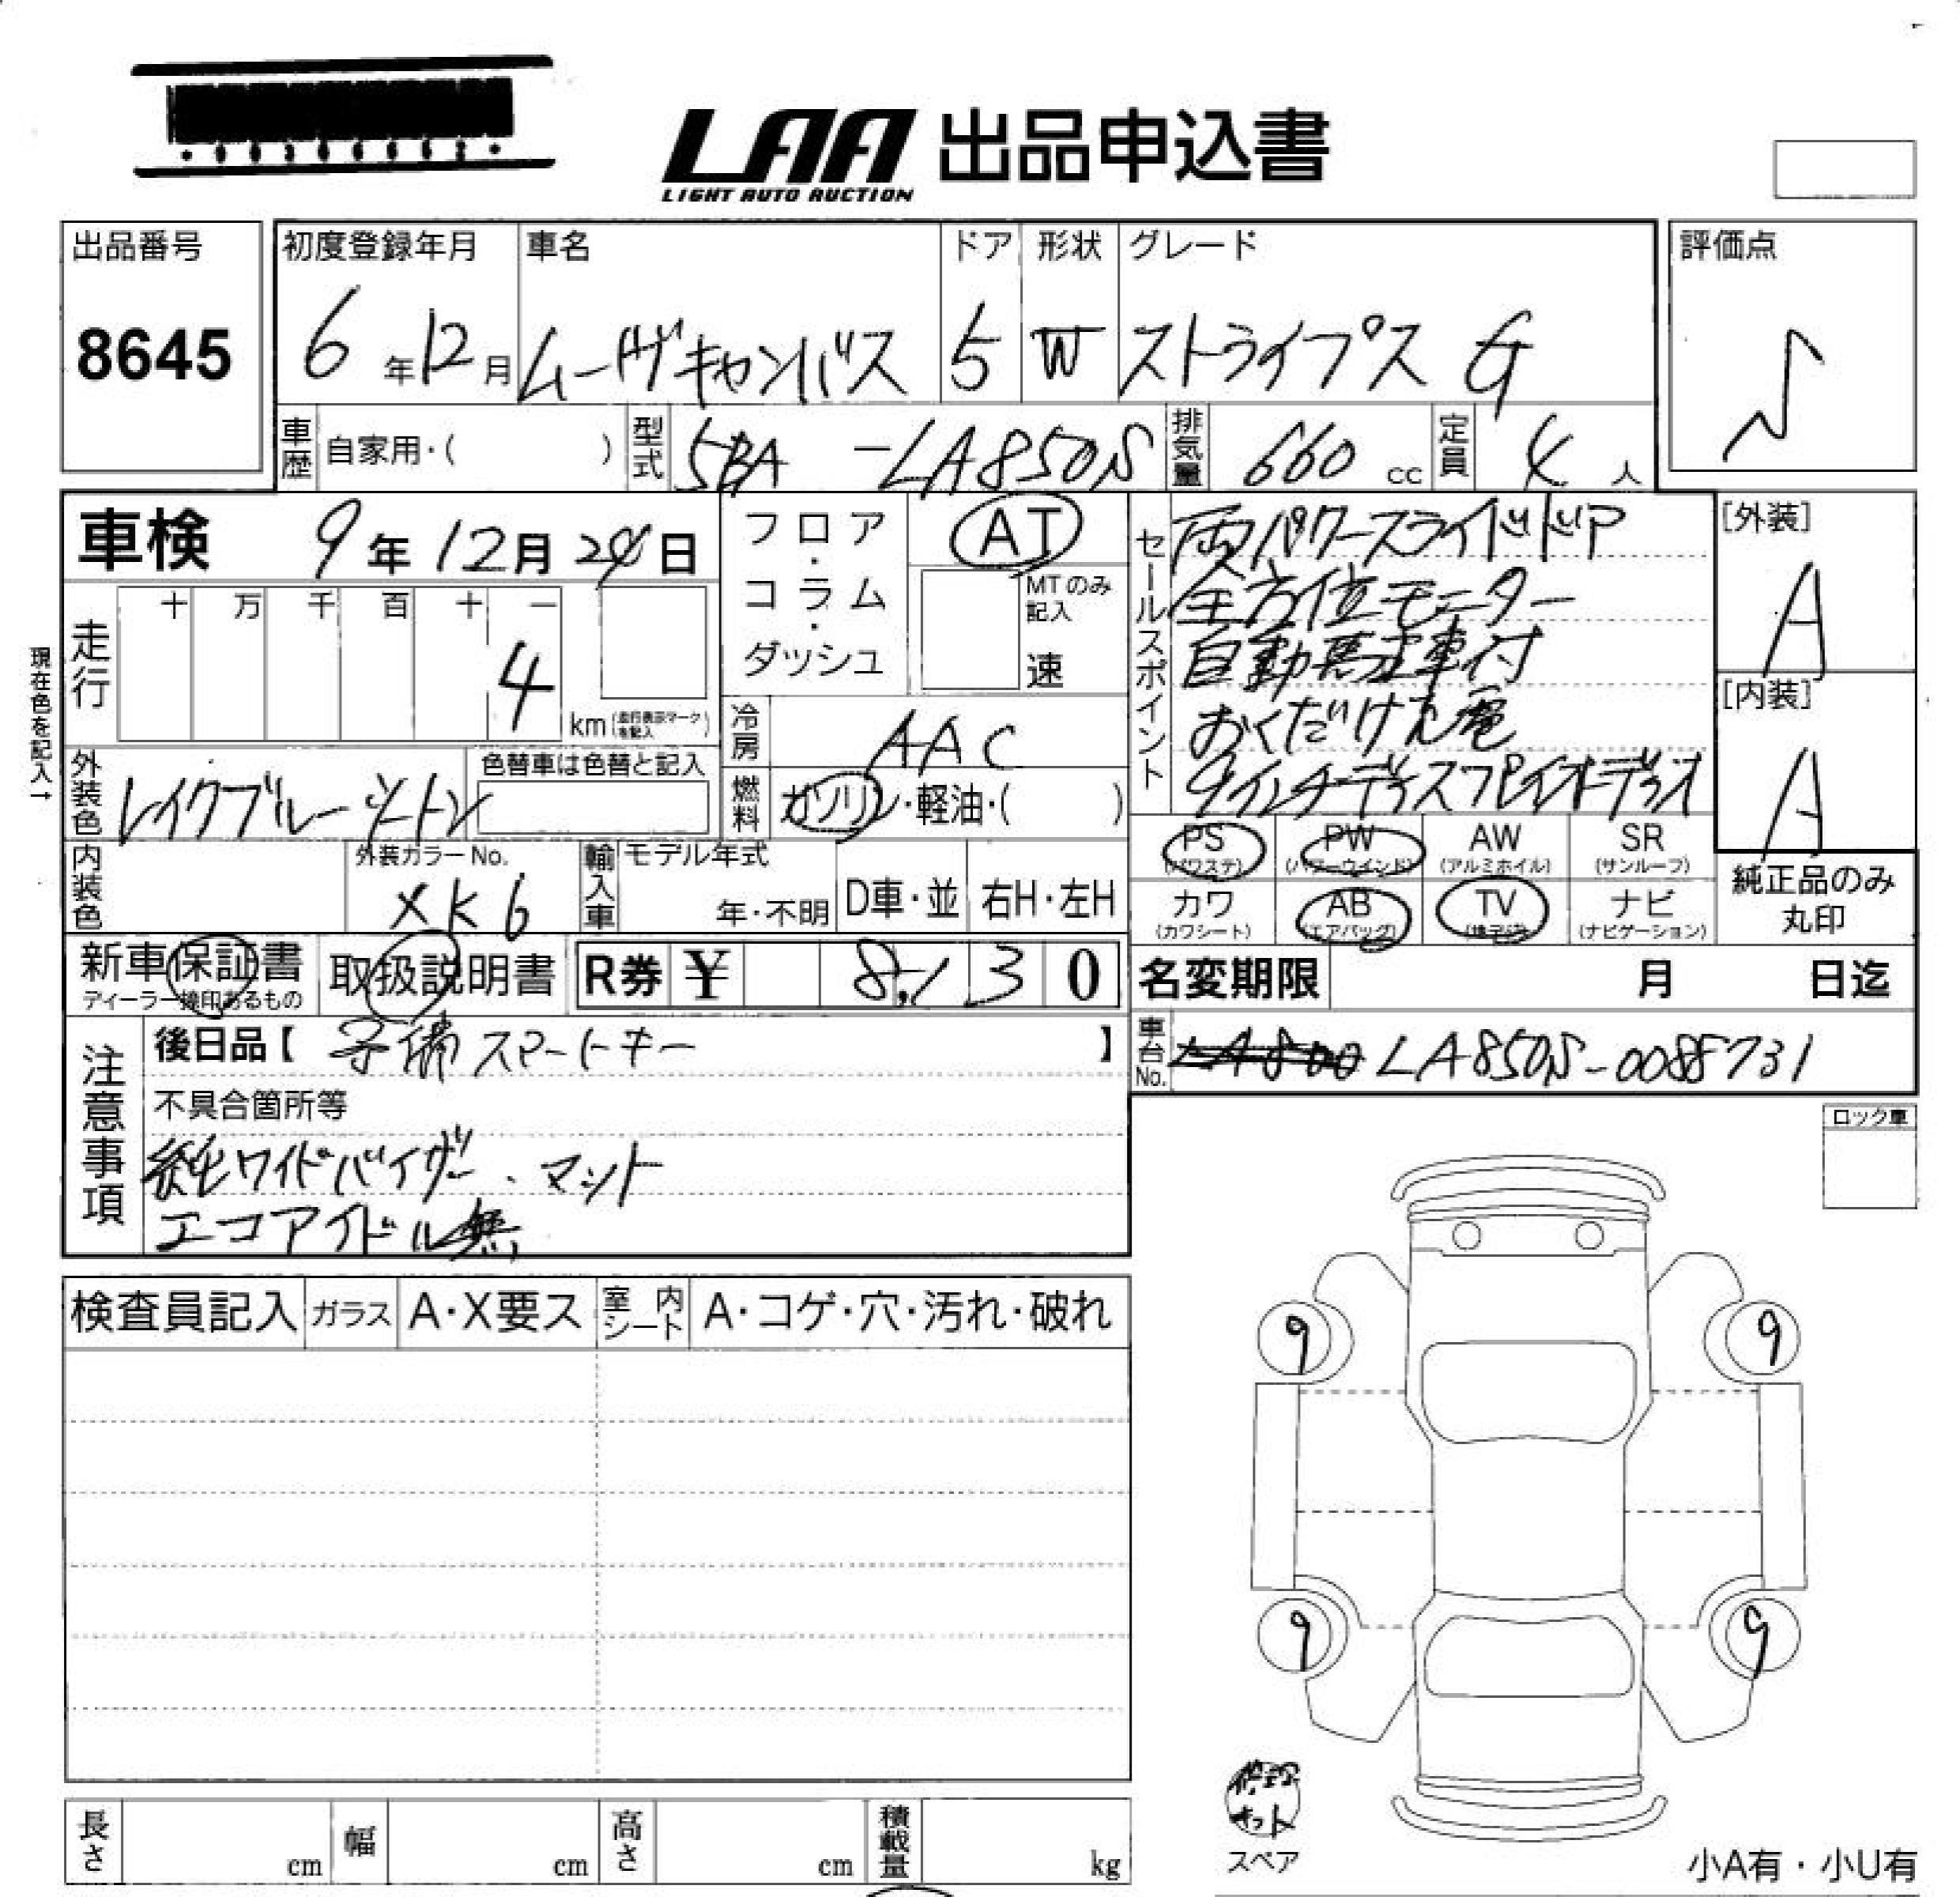 LAA 出品申込書
LIGHT AUTO AUCTION
出品番号
8645
初度登録年月
6年12月
車名
ムーヴキャンバス
ドア
5
形状
W
グレード
ストライプス G
評価点
車歴
自家用・( )
型式
5BA -LA850S
排気量
660 cc
定員
4人
車検 9年12月24日
走行
十 万 千 百 十 一
4
km(走行表示マークを記入)
現在色を記入→
外装色
レイクブルーツートン
色替車は色替と記入
内装色
外装カラーNo.
XK6
輸入車
モデル年式
年・不明
D車・並
右H・左H
フロア・コラム・ダッシュ
AT
MTのみ記入
速
冷房
AAC
燃料
ガソリン・軽油・( )
セールスポイント
両パワースライドドア
全方位モーター
自動駐車付
おくだけ充電
9インチディスプレイオーディオ
[外装]
A
[内装]
A
PS (パワステ)
PW (パワーウインド)
AW (アルミホイル)
SR (サンルーフ)
カワ (カワシート)
AB (エアバッグ)
TV (地デジ)
ナビ (ナビゲーション)
純正品のみ丸印
新車保証書
ディーラー捺印あるもの
取扱説明書
R券 ¥ 8,130
名変期限 月 日迄
注意事項
後日品【 予備スマートキー 】
不具合箇所等
純正ワイドバイザー、マット
エコアイドル無
車台No.
LA850S-0088731
ロック車
検査員記入
ガラス
A・X要ス
室内シート
A・コゲ・穴・汚れ・破れ
9
9
9
9
修理キット
スペア
長さ cm
幅 cm
高さ cm
積載量 kg
小A有・小U有